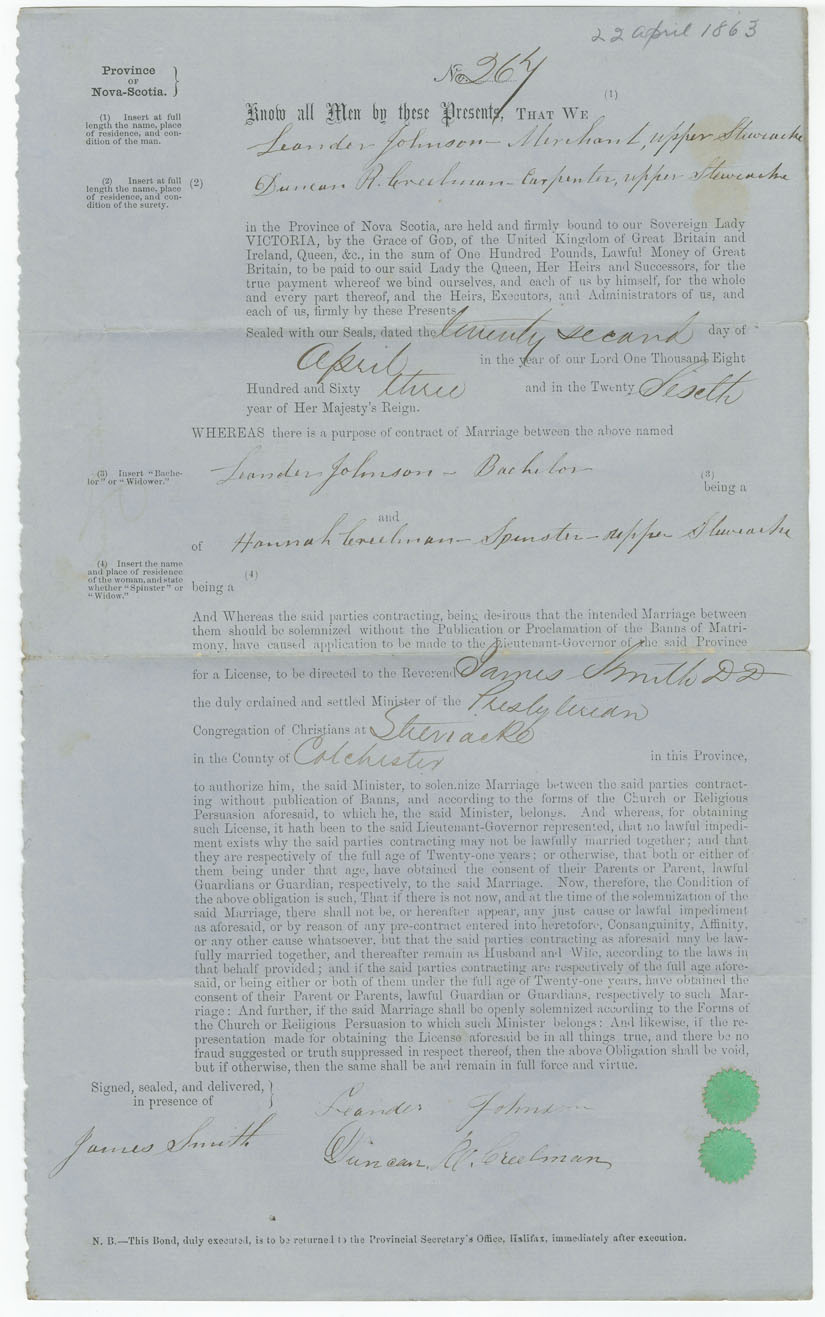 22 April 1863
Province
OF
Nova-Scotia.
No. 267
(1)
(1) Insert at full
length the name, place
of residence, and con-
dition of the man.
Know all Men by these Presents, THAT WE
Leander Johnson - Merchant, upper Stewiacke
(2) Insert at full
length the name, place
of residence, and con-
dition of the surety.
(2)
Duncan R. Creelman - Carpenter, upper Stewiacke
in the Province of Nova Scotia, are held and firmly bound to our Sovereign Lady
VICTORIA, by the Grace of GOD, of the United Kingdom of Great Britain and
Ireland, Queen, &c., in the sum of One Hundred Pounds, Lawful Money of Great
Britain, to be paid to our said Lady the Queen, Her Heirs and Successors, for the
true payment whereof we bind ourselves, and each of us by himself, for the whole
and every part thereof, and the Heirs, Executors, and Administrators of us, and
each of us, firmly by these Presents.
Sealed with our Seals, dated the twenty second day of
April in the year of our Lord One Thousand Eight
Hundred and Sixty three and in the Twenty Sixth
year of Her Majesty's Reign.
WHEREAS there is a purpose of contract of Marriage between the above named
(3) Insert "Bache-
lor" or "Widower."
Leander Johnson - Bachelor
(3)
being a
and
of Hannah Creelman - Spinster - upper Stewiacke
(4) Insert the name
and place of residence
of the woman, and state
whether "Spinster" or
"Widow."
(4)
being a
And Whereas the said parties contracting, being desirous that the intended Marriage between
them should be solemnized without the Publication or Proclamation of the Banns of Matri-
mony, have caused application to be made to the Lieutenant-Governor of the said Province
for a License, to be directed to the Reverend James Smith D D
the duly ordained and settled Minister of the Presbyterian
Congregation of Christians at Stewiacke
in the County of Colchester in this Province,
to authorize him, the said Minister, to solemnize Marriage between the said parties contract-
ing without publication of Banns, and according to the forms of the Church or Religious
Persuasion aforesaid, to which he, the said Minister, belongs. And whereas, for obtaining
such License, it hath been to the said Lieutenant-Governor represented, that no lawful impedi-
ment exists why the said parties contracting may not be lawfully married together; and that
they are respectively of the full age of Twenty-one years; or otherwise, that both or either of
them being under that age, have obtained the consent of their Parents or Parent, lawful
Guardians or Guardian, respectively, to the said Marriage. Now, therefore, the Condition of
the above obligation is such, That if there is not now, and at the time of the solemnization of the
said Marriage, there shall not be, or hereafter appear, any just cause or lawful impediment
as aforesaid, or by reason of any pre-contract entered into heretofore, Consanguinity, Affinity,
or any other cause whatsoever, but that the said parties contracting as aforesaid may be law-
fully married together, and thereafter remain as Husband and Wife, according to the laws in
that behalf provided; and if the said parties contracting are respectively of the full age afore-
said, or being either or both of them under the full age of Twenty-one years, have obtained the
consent of their Parent or Parents, lawful Guardian or Guardians, respectively to such Mar-
riage: And further, if the said Marriage shall be openly solemnized according to the Forms of
the Church or Religious Persuasion to which such Minister belongs: And likewise, if the re-
presentation made for obtaining the License aforesaid be in all things true, and there be no
fraud suggested or truth suppressed in respect thereof, then the above Obligation shall be void,
but if otherwise, then the same shall be and remain in full force and virtue.
Signed, sealed, and delivered,
in presence of
Leander Johnson
James Smith
Duncan R. Creelman
N. B.—This Bond, duly executed, is to be returned to the Provincial Secretary's Office, Halifax, immediately after execution.